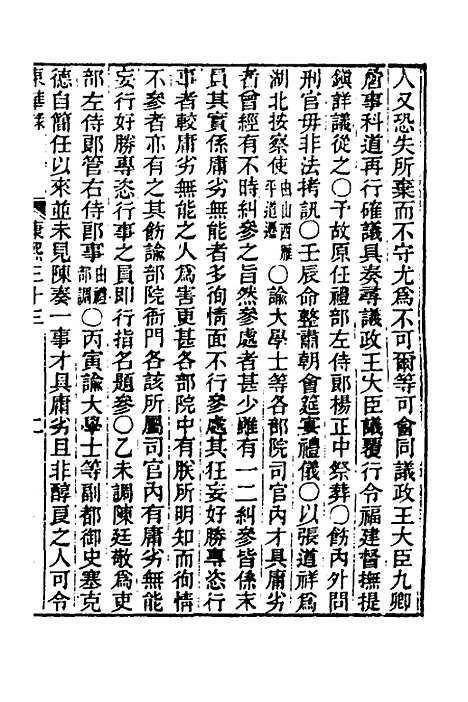 人又恐失所棄而不守尤爲不可爾等可會同議政王大臣九卿
詹事科道再行確議具奏尋議政王大臣議覆行令福建督撫提
鎮詳議從之〇予故原任禮部左侍郎楊正中祭葬〇飭內外問
刑官毋非法拷訊〇壬辰命整肅朝會筵宴禮儀〇以張道祥爲
湖北按察使由山西雁平道遷〇諭大學士等各部院司官內才具庸劣
者曾經有不時糾參之旨然參處者甚少雖有一二糾參皆係末
員其實係庸劣無能者多徇情面不行參處其狂妄好勝專恣行
事者較庸劣無能之人爲害更甚各部院中有朕所明知而徇情
不參者亦有之其飭諭部院衙門各該所屬司官內有庸劣無能
妄行好勝專恣行事之員即行指名題參〇乙未調陳廷敬爲吏
部左侍郎管右侍郎事由禮部調〇丙寅諭大學士等副都御史塞克
德自簡任以來並未見陳奏一事才具庸劣且非醇良之人可令
東華錄 康熙三十三 二